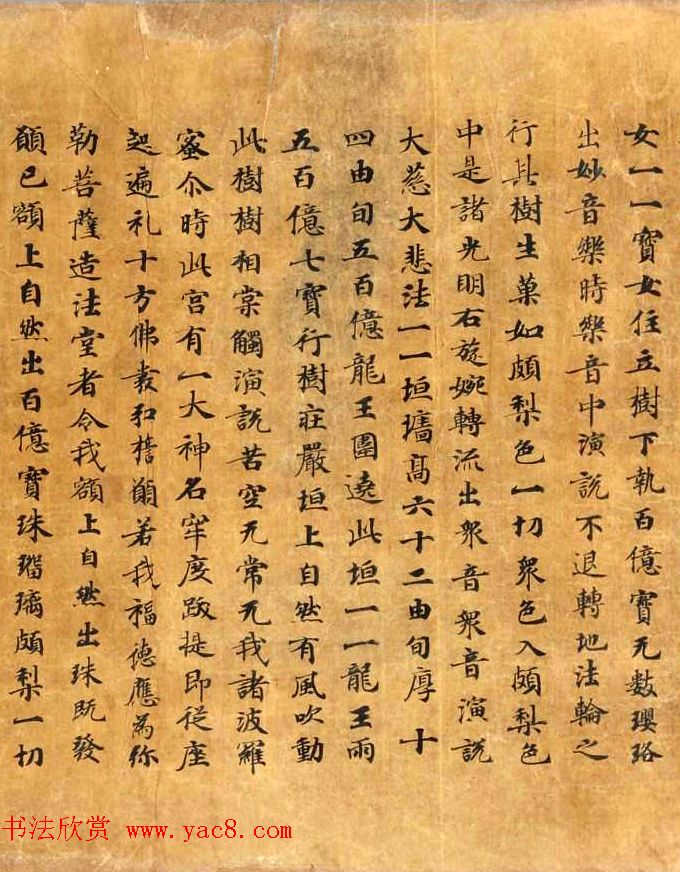 女一一寶女住立樹下執百億寶无數瓔珞
出妙音樂時樂音中演說不退轉地法輪之
行其樹生菓如頗梨色一切衆色入頗梨色
中是諸光明右旋婉轉流出衆音衆音演說
大慈大悲法一一垣牆高六十二由旬厚十
四由旬五百億龍王圍遶此垣一一龍王雨
五百億七寶行樹莊嚴垣上自然有風吹動
此樹樹相棠觸演說苦空无常无我諸波羅
蜜尒時此宮有一大神名窂度跋提即從座
起遍礼十方佛發弘擔願若我福德應為弥
勒菩薩造法堂者令我額上自然出珠既發
願已額上自然出百億寶珠瑠璃頗梨一切
书法欣赏 www.yac8.com